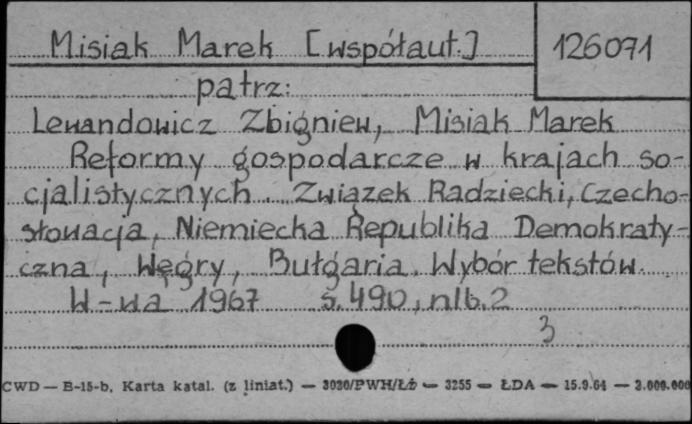 Misiak Marek [współaut.] 126071
patrz:
Lewandowicz Zbigniew, Misiak Marek
Reformy gospodarcze w krajach so-
cjalistycznych. Związek Radziecki, Czecho-
słowacja, Niemiecka Republika Demokraty-
czna, Węgry, Bułgaria. Wybór tekstów.
W-wa 1967 s. 490, nlb. 2
3
CWD — B-15-b. Karta katal. (z liniat.) — 3030/PWH/ŁÓ — 3255 — ŁDA — 15.9.64 — 3.000.000